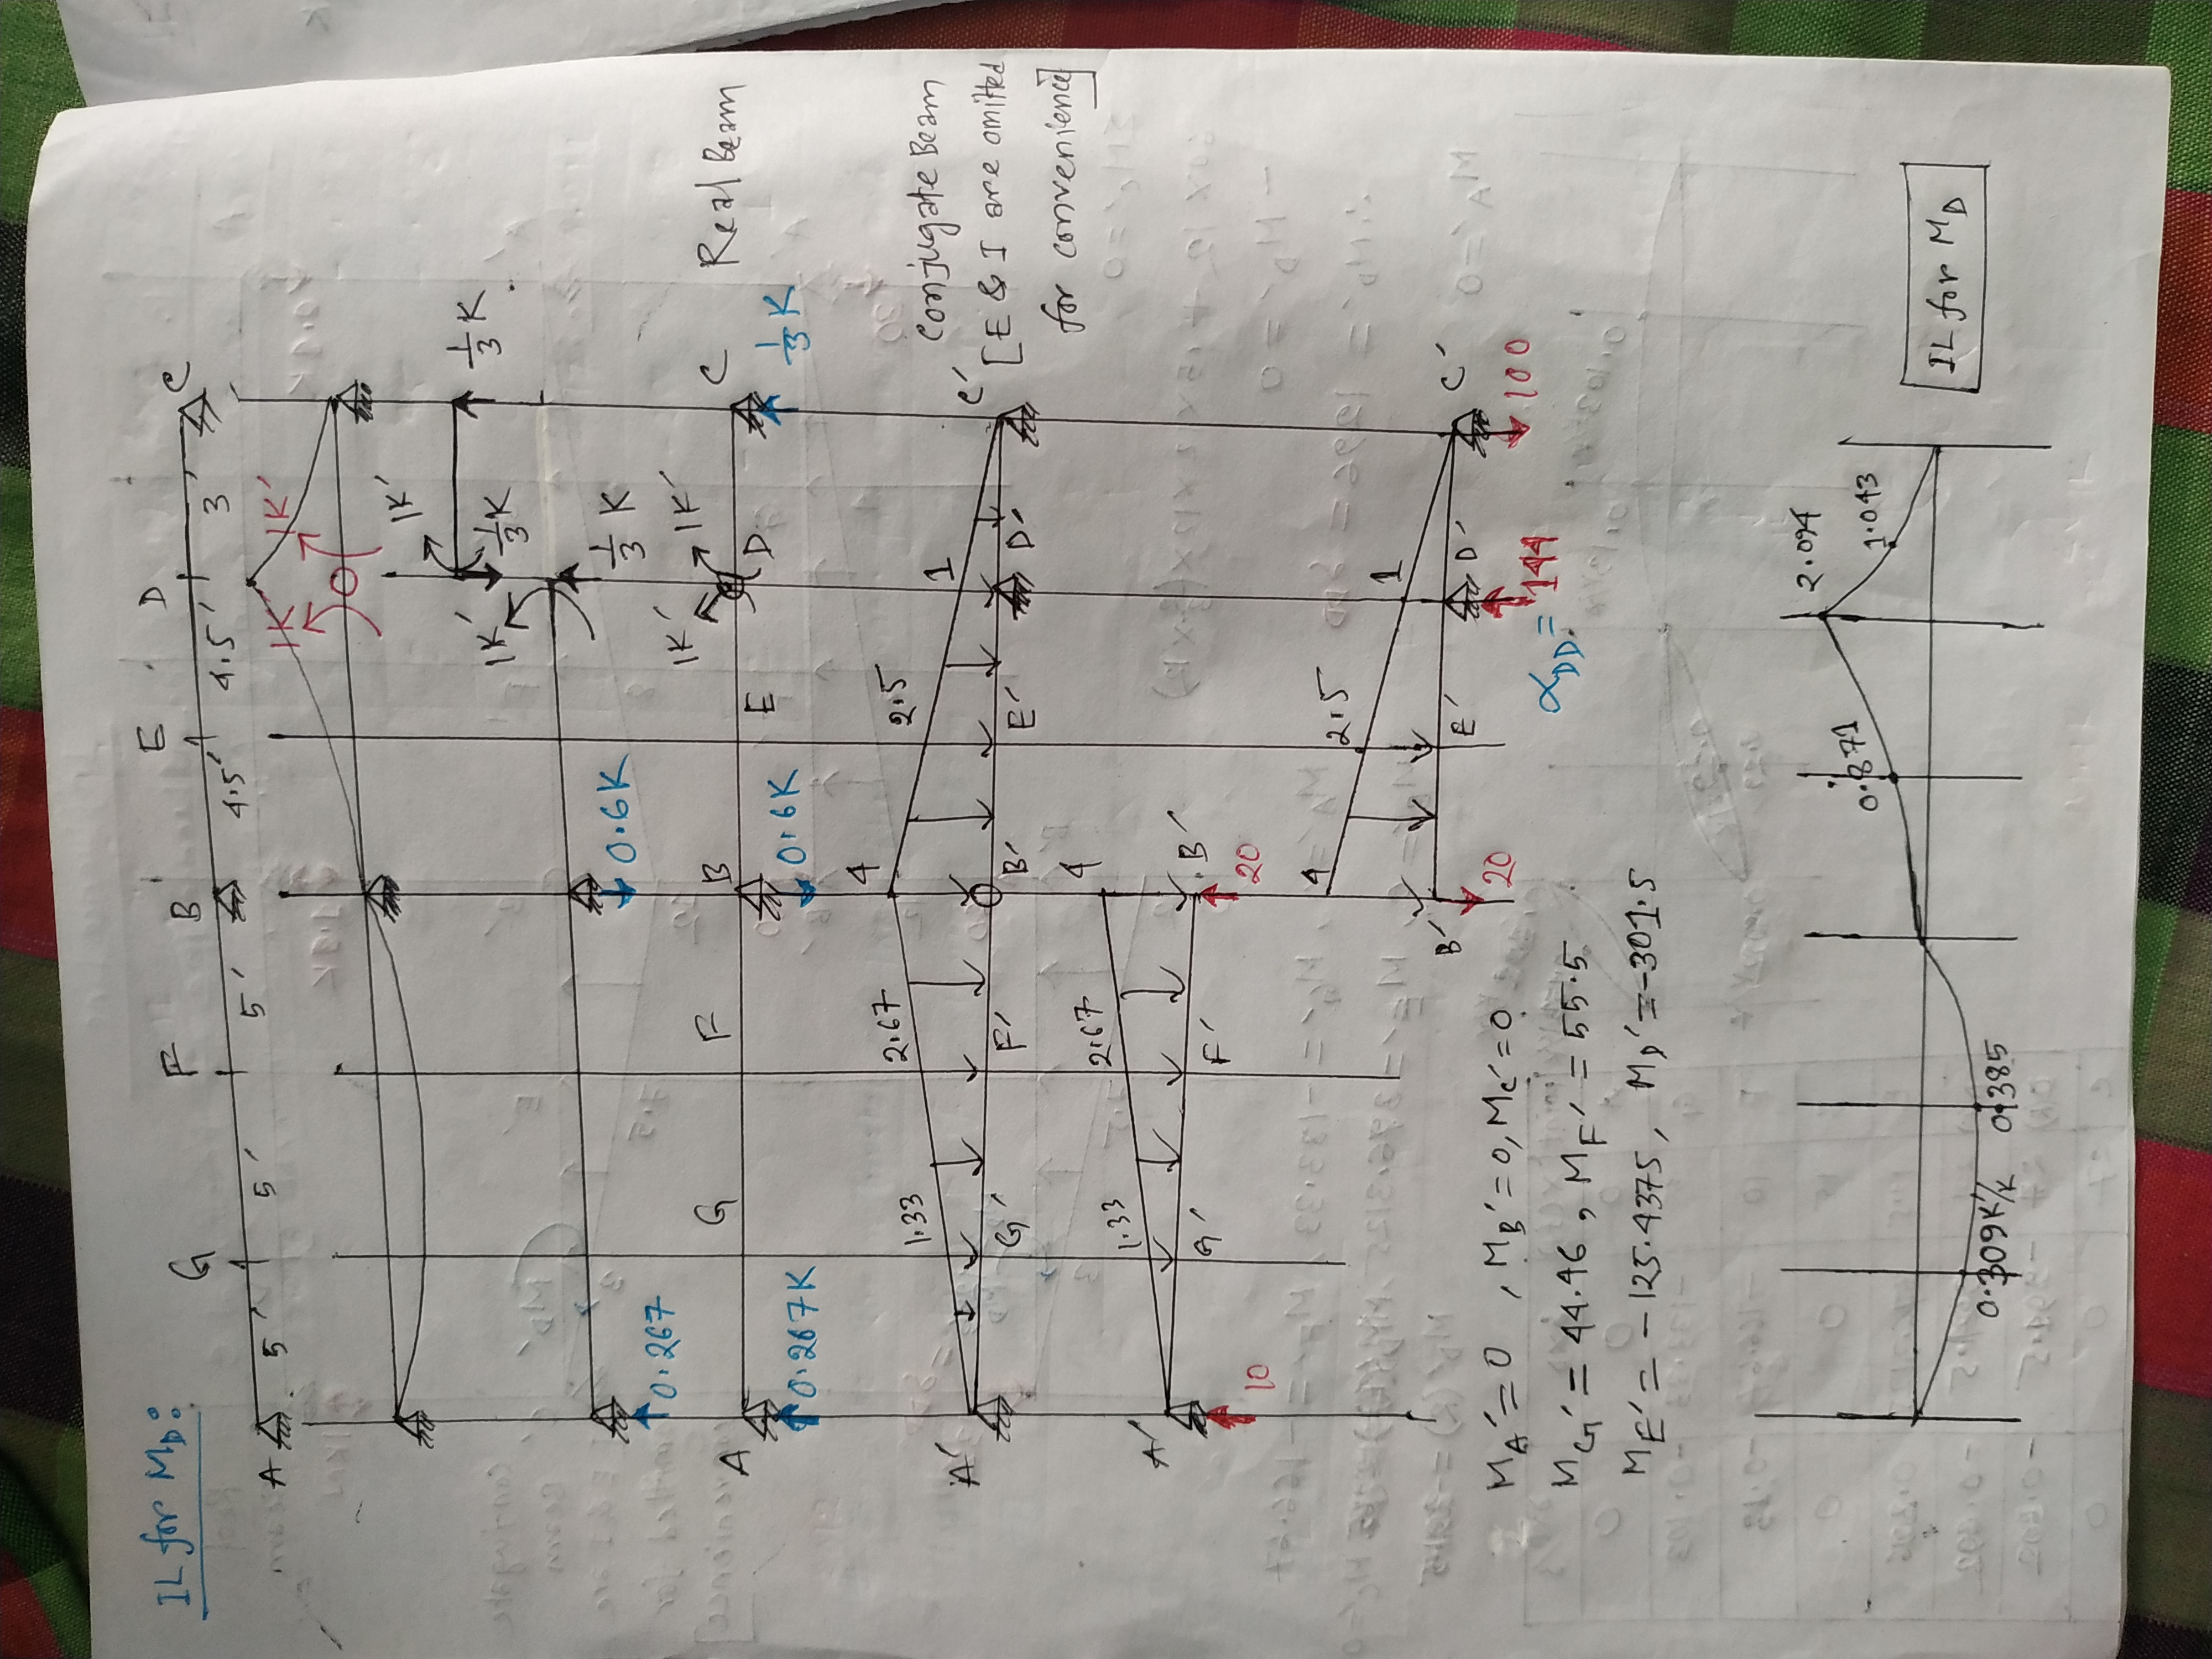 IL for MD:
A 5' G 5' F 5' B 4.5' E 4.5' D 3' C
1K' 1K'
1K' 1/3 K 1/3 K
1K' 1/3 K
0.267 0.6K
A G F B E D C Real Beam
1K' 1K'
0.267K 0.6K 1/3 K
1.33 2.67 4 2.5 1
A' G' F' B' E' D' C'
Conjugate Beam
[E & I are omitted
for convenience]
1.33 2.67 4
A' G' F' B'
10 20
4 2.5 1
B' E' D' C'
20 144 100
αDD=
MA'=0, MB'=0, MC'=0
MG'= 44.46, MF'= 55.5
ME'= -125.4375, MD'=-301.5
0.309K'/K 0.385 0.871 2.094 1.043
IL for MD